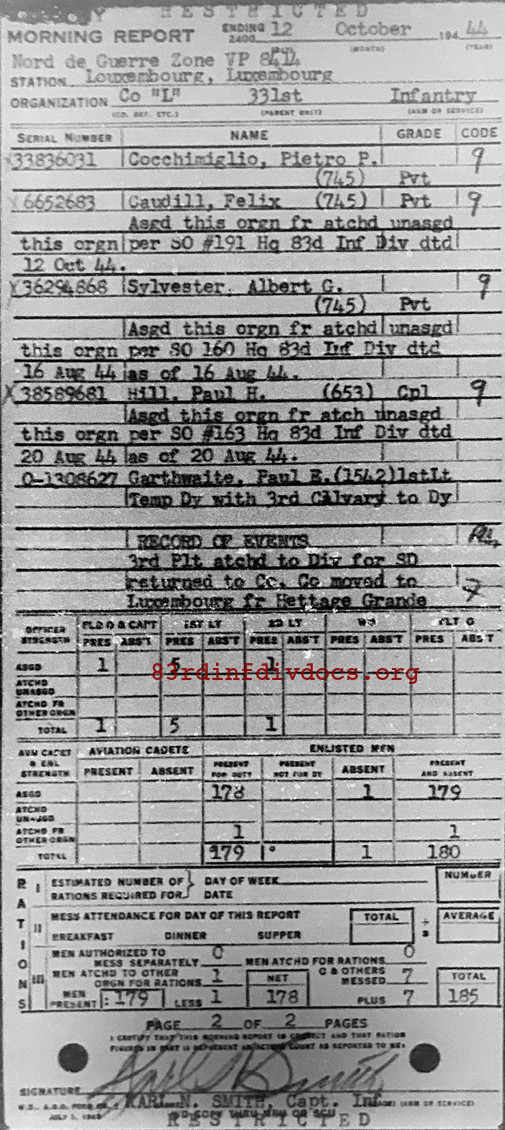 RESTRICTED
MORNING REPORT ENDING 2400 12 October 1944
(MONTH) (YEAR)
Nord de Guerre Zone VP
STATION Louxembourg, Luxembourg
ORGANIZATION Co "L" 331st Infantry
(CO. DET. ETC.) (PARENT UNIT) (ARM OR SERVICE)
SERIAL NUMBER NAME GRADE CODE
33836031 Cocchimiglio, Pietro P. 9
(745) Pvt
6652683 Caudill, Felix (745) Pvt 9
Asgd this orgn fr atchd unasgd
this orgn per SO #191 Hq 83d Inf Div dtd
12 Oct 44.
X36294868 Sylvester, Albert G. 9
(745) Pvt
Asgd this orgn fr atchd unasgd
this orgn per SO 160 Hq 83d Inf Div dtd
16 Aug 44 as of 16 Aug 44.
X38589681 Hill, Paul H. (653) Cpl 9
Asgd this orgn fr atch unasgd
this orgn per SO #163 Hq 83d Inf Div dtd
20 Aug 44 as of 20 Aug 44.
O-1308627 Garthwaite, Paul E.(1542)1stLt
Temp Dy with 3rd Calvary to Dy
RECORD OF EVENTS
3rd Plt atchd to Div for SD
returned to Co. Co moved to
Luxembourg fr Hettage Grande
OFFICER STRENGTH FLD O & CAPT 1ST LT 2D LT W O FLT O
PRES ABS'T PRES ABS'T PRES ABS'T PRES ABS'T PRES ABS'T
ASGD 1 5 1
83rdinfdivdocs.org
ATCHD UNASGD
ATCHD FR OTHER ORGN
TOTAL 1 5 1
AVN CADET & ENL STRENGTH AVIATION CADETS ENLISTED MEN
PRESENT ABSENT PRESENT FOR DUTY PRESENT NOT FOR DY ABSENT PRESENT AND ABSENT
ASGD 178 1 179
ATCHD UNASGD
ATCHD FR OTHER ORGN 1 1
TOTAL 179 1 180
RATIONS
I ESTIMATED NUMBER OF RATIONS REQUIRED FOR } DAY OF WEEK DATE NUMBER
II MESS ATTENDANCE FOR DAY OF THIS REPORT TOTAL ÷ 3 AVERAGE
BREAKFAST DINNER SUPPER
III MEN AUTHORIZED TO MESS SEPARATELY 0 MEN ATCHD FOR RATIONS 0
MEN ATCHD TO OTHER ORGN FOR RATIONS 1 NET O & OTHERS MESSED 7 TOTAL
MEN PRESENT: 179 LESS 1 178 PLUS 7 185
PAGE 2 OF 2 PAGES
I CERTIFY THAT THIS MORNING REPORT IS CORRECT AND THAT RATION
FIGURES IN PART III REPRESENT AN ACTUAL COUNT AS REPORTED TO ME:
SIGNATURE Karl N Smith
KARL N. SMITH, Capt. Inf (ARM OR SERVICE)
W.D., A.G.O. FORM NO. 1
JULY 1, 1943
RESTRICTED